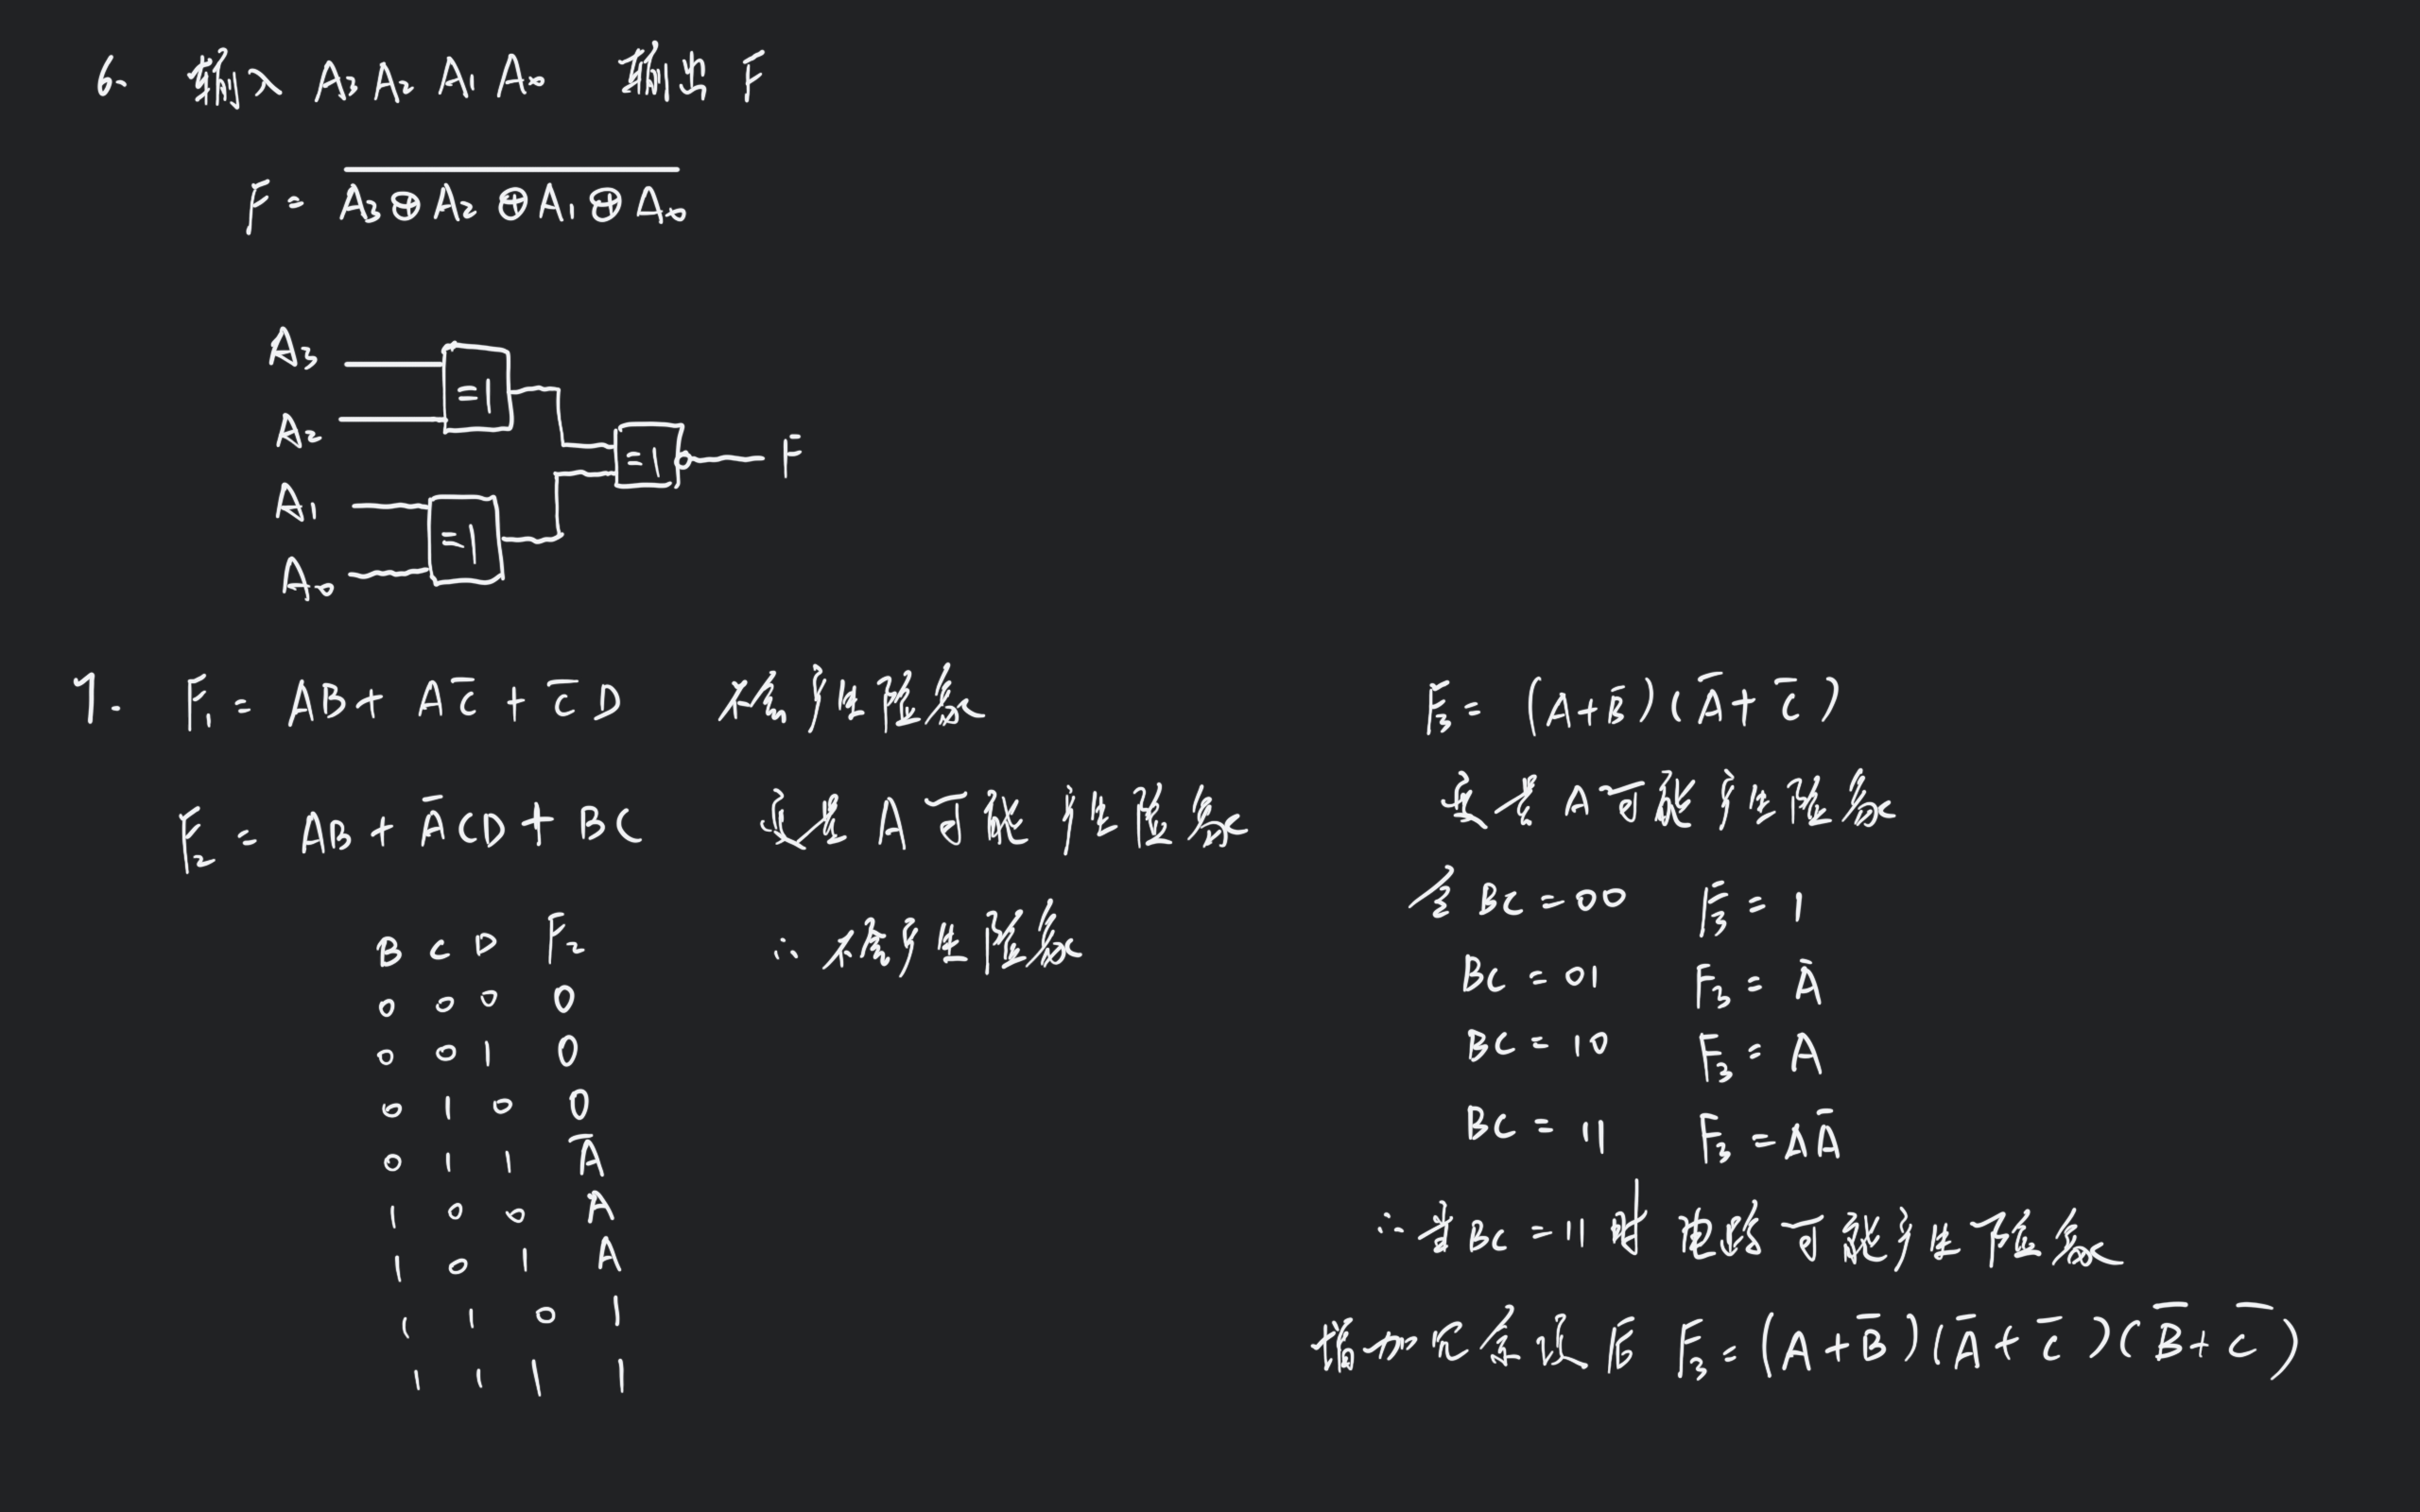 6. 输入 A₃ A₂ A₁ A₀ 输出 F
F = \overline{A₃⊕A₂⊕A₁⊕A₀}
A₃
=1
A₂
=1
F
A₁
=1
A₀
7. F₁ = AB + AC̅ + C̅D 不会产生险象
F₂ = AB + A̅CD + BC 变量 A 可能产生险象
B C D F₂
∴ 不会产生险象
0 0 0 0
0 0 1 0
0 1 0 0
0 1 1 A̅
1 0 0 A
1 0 1 A
1 1 0 1
1 1 1 1
F₃ = (A+B̅)(A̅+C̅)
变量 A 可能产生险象
令 BC = 00 F₃ = 1
BC = 01 F₃ = A̅
BC = 10 F₃ = A
BC = 11 F₃ = AA̅
∴ 当 BC = 11 时 电路可能产生险象
增加冗余项后 F₃ = (A+B̅)(A̅+C̅)(B̅+C̅)